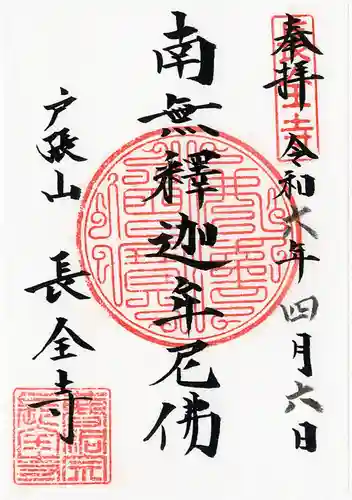 奉拝 令和六年四月六日
南無釋迦牟尼佛
戸張山 長全寺